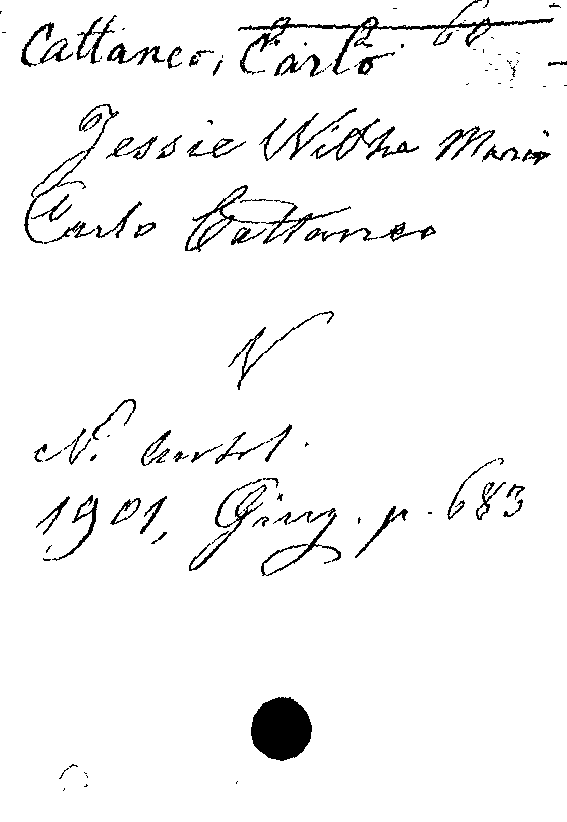 Cattaneo, Carlo 60
Jessie White Mario
Carlo Cattaneo
V
N. Antol.
1901, Giug. p. 683